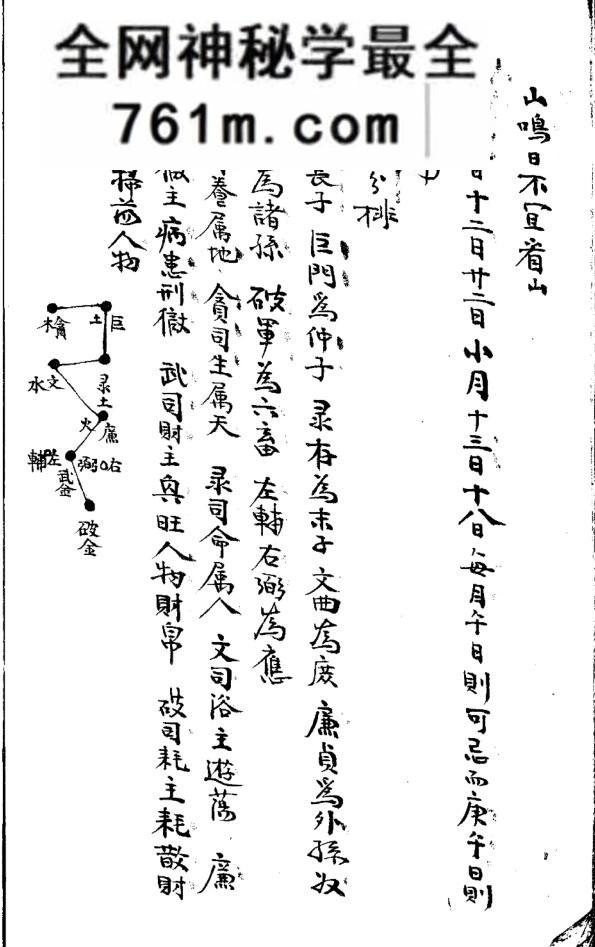 全网神秘学最全
761m.com
山鳴日不宜看山
日十二日廿二日小月十三日十八日每月午日則可忌而庚午日則
分排
長子 巨門為仲子 录存為末子 文曲為庶 廉貞為外孫奴
為諸孫 破軍為六畜 左輔右弼為應
養属地 貪司生属天 录司命属人 文司浴主遊蕩 廉
主病患刑獄 武司財主興旺人物財帛 破司耗主耗散財
人物
巨
土
木
水文
录土
火
廉
輔
弼右
武金
破金